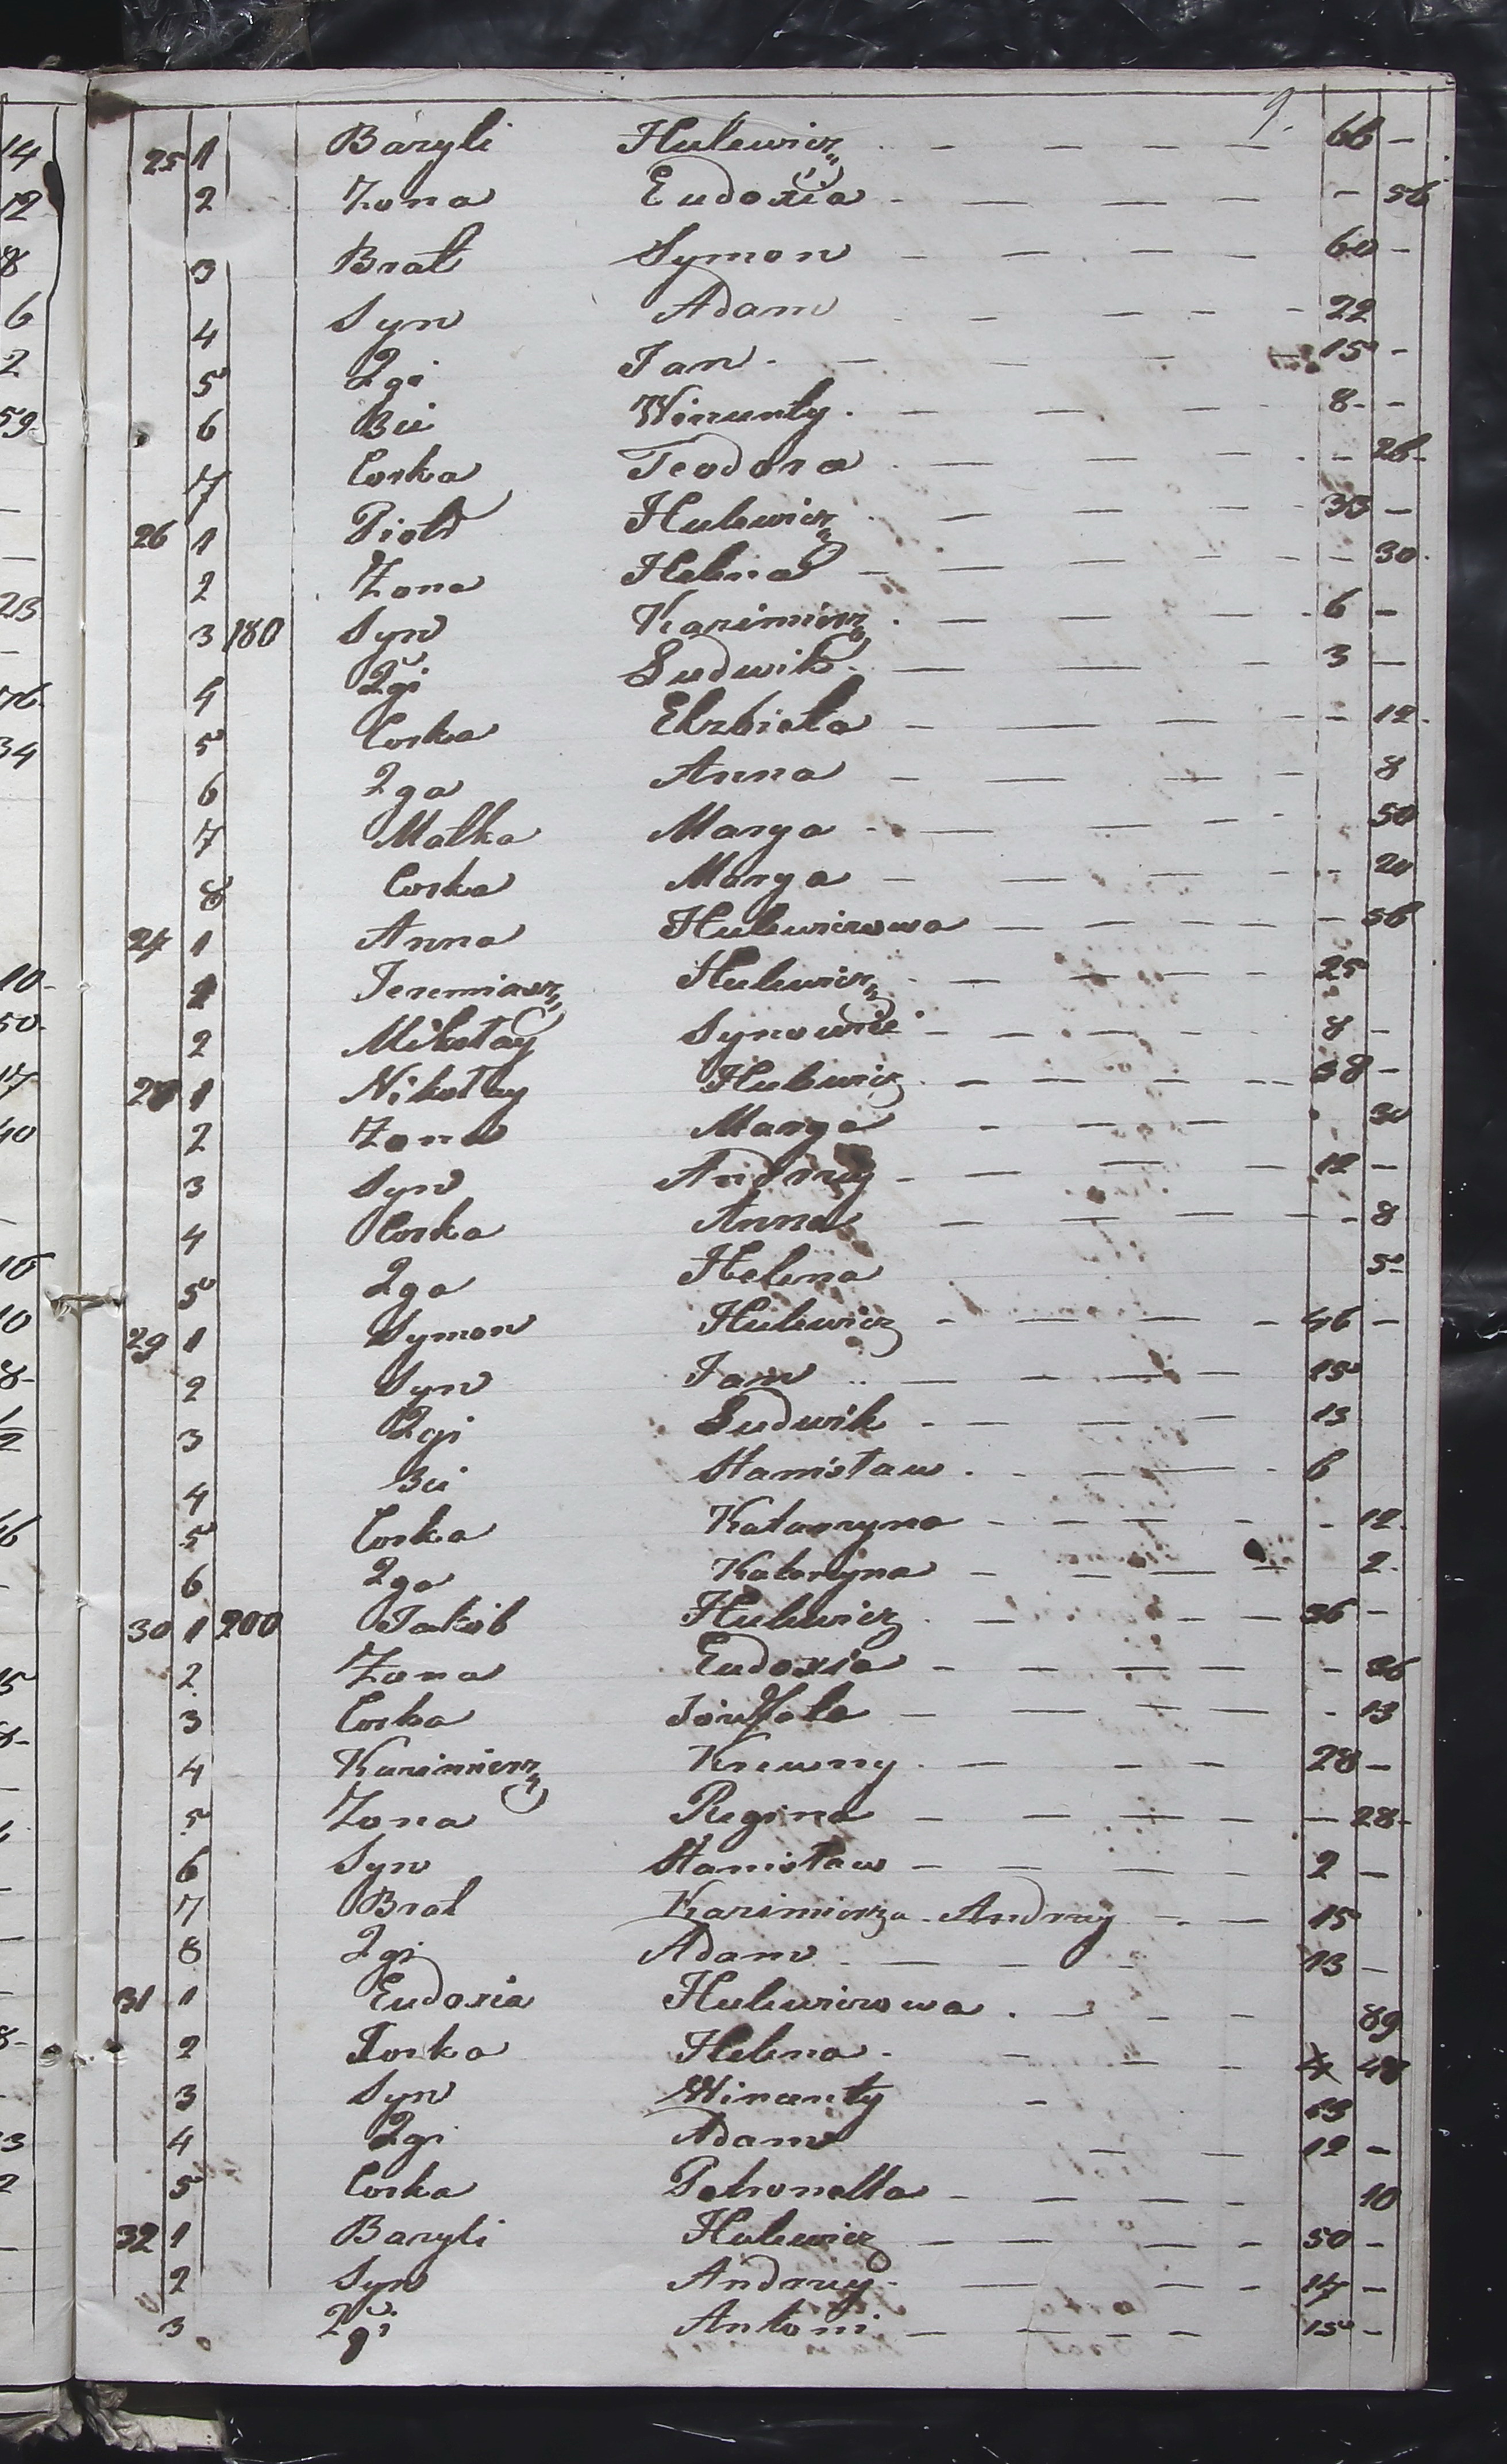 9.
25 1 Bazyli Hulewicz - - - - 66 -
2 Zona Eudoxia - - - - - 56
3 Brat Symon - - - - 60 -
4 Syn Adam - - - - 22
5 2gi Jan - - - - 15 -
6 3ci Wincenty - - - 8 - -
7 Corka Teodora - - - - 26 -
26 1 Piotr Hulewicz - - - - 33 -
2 Zona Helena - - - - - 30
3 180 Syn Kazimierz - - - - 6 -
4 2gi Ludwik - - - - 3 -
5 Corka Elzbieta - - - - - 12
6 2ga Anna - - - - 8
7 Matka Marya - - - - 50
8 Corka Marya - - - - 20
27 1 Anna Hulewiczowa - - - - - 56
1 Jeremiasz Hulewicz - - - - 25
2 Mikołay Synowiec - - - - 8 -
28 1 Nikołay Hulewicz - - - - 38 -
2 Zona Marya - - - 30
3 Syn Andrzey - - - - 12 -
4 Corka Anna - - - - - 8
5 2ga Helena 5 -
29 1 Symon Hulewicz - - - - 46 -
2 Syn Jan - - - - 15
3 2gi Ludwik - - - - 13
4 3ci Stanisław - - - - 6
5 Corka Katarzyna - - - - - 12
6 2ga Katarzyna - - - - 2
30 1 200 Jakób Hulewicz - - - - 36 -
2 Zona Eudoxia - - - - - 36
3 Corka - - - - 13
4 Kazimierz Krewny - - - 28 -
5 Zona Regina - - - - - 28 -
6 Syn Stanisław - - - - 2 -
7 Brat Kazimierza Andrzey - - 15
8 2gi Adam - - - - 13 -
31 1 Eudoxia Hulewiczowa - - - 89
2 Corka Helena - - - - 48
3 Syn Wincenty -
4 2gi Adam - - 12 -
5 Corka Petronella - - - - 10
32 1 Bazyli Hulewicz - - - - 50 -
2 Syn Andrzey - - - - 17 -
3 2gi Antoni - - - - 15 -